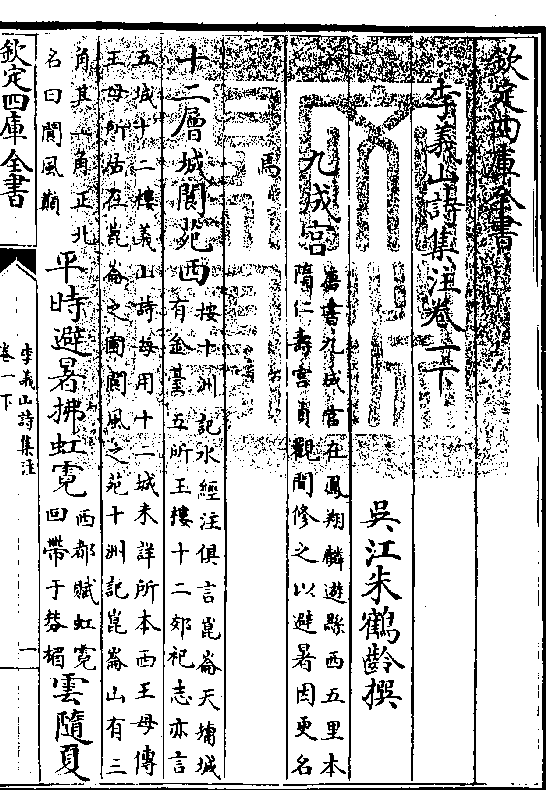 欽定四庫全書
李義山詩集注卷一下
吳江朱鶴齡撰
九成宮
唐書九成宮在鳳翔麟遊縣西五里本
隋仁壽宮貞觀間修之以避暑因更名
焉
十二層城閬苑西
按十洲記水經注俱言崑崙天墉城
有金臺五所玉樓十二郊祀志亦言
五城十二樓義山詩每用十二城未詳所本西王母傳
王母所居在崑崙之圃閬風之苑十洲記崑崙山有三
角其一角正北
名曰閬風巔
平時避暑拂虹霓
西都賦虹霓
回帶于棼楣
雲隨夏
欽定四庫全書
李義山詩集注
卷一下
一